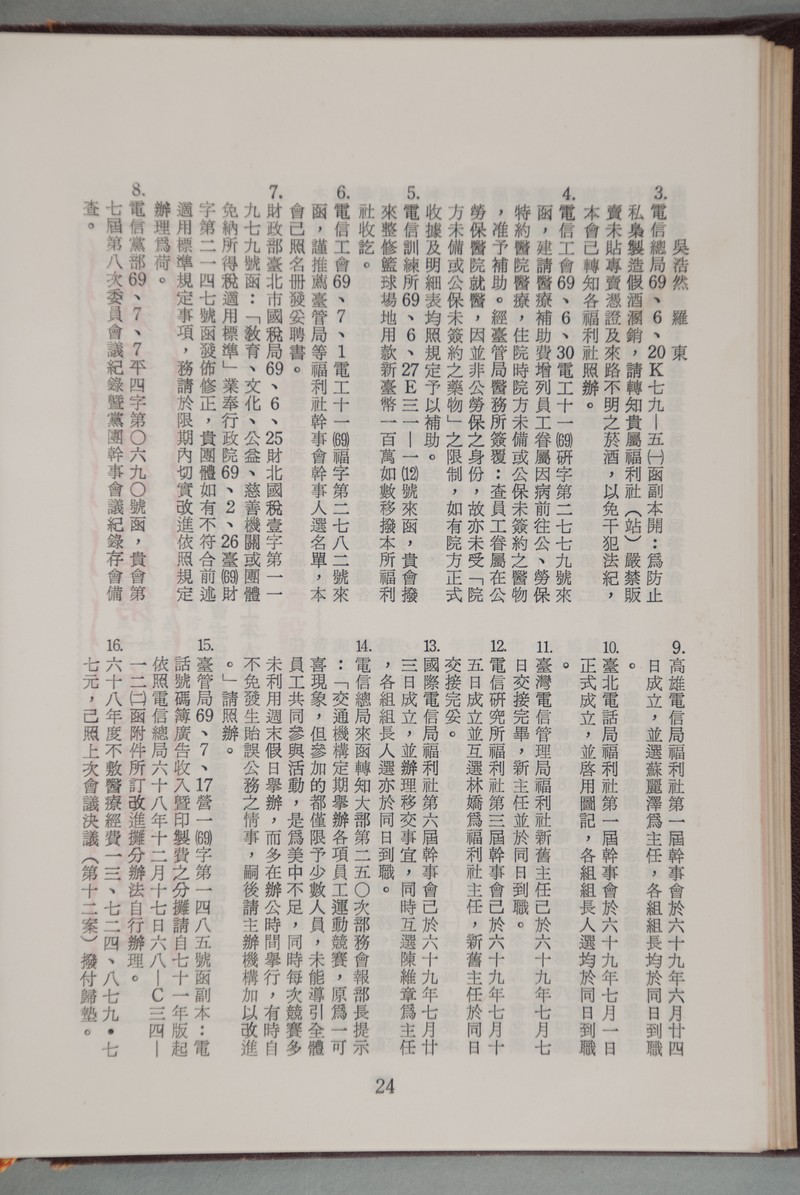 吳浩然　羅　東
3.電信總局69、6、20K七九—五㈠函副本開：爲防止
私梟製造假酒溷銷，請轉知貴屬福利社（站）嚴禁販
賣未貼專賣憑證及來路不明之菸酒，以免干犯法紀，
本會已轉知各福利社照辦。
4.電信工會69、6、30電工十一(69)研字第二七七九號來
函，建請醫療補助費增列員工眷屬因病前往公、勞保
特約醫院醫療，住院時院方未備或公保未簽約之醫物
，准予補助。經臺管局醫務所簽覆：查員工眷屬在公
勞保醫院就醫，因並非公勞保之身份，故亦未受「院
方未備或公保未簽約之藥物」之限制，如有院方正式
收據及明細表均照規定予以補助。
5.電信訓練所69、6、27E三一—一(12)號來函，貴會撥
來整修籃球場地用款新臺幣一百萬如數移撥本所福利
社收訖。
6.電信工會69、7、1電工十一(69)福字第二七八二號來
函，謹推薦臺管局等福利社幹事會幹事人選名單，本
會已照名冊發妥聘書。
7.財政部臺北市國稅局69、6、25財北國稅壹字第一一
九七九號函：「敎育、文化、公益、慈善機關或團體
免納所得稅適用標準」業奉行政院69、2、26臺(69)財
字第二一四七號函發佈修正，貴團體如有不符合前述
適用標準規定事項，務請於限期內切實改進依照規定
辦理爲荷。
8.電信黨部69、7、7平四字第〇六九〇號函，貴會第
七屆第八次委員會議紀錄暨黨團幹事會議紀錄存會備
查。
9.高雄電信局福利社第一屆幹事會於六十九年六月廿四
日成立，並選蘇麗澤爲主任，各組組長均於同日到職
。
10.臺北電話局福利社第一屆幹事會於六十九年七月一日
正式成立，並啓用圖記，各組組長人選均於同日到職
。
11.臺灣電信管理局福利社新舊主任已於六十九年七月七
日交接完畢，新主任並於同日到職。
12.電信研究所福利社第三屆幹事會已於六十九年七月十
五日成立並互選林嬌爲福利社主任，新舊主任於同日
交接完妥。
13.國際電信局福利社第六屆幹事會已於六十九年七月廿
三日成立，並辦理移交事宜，同時互選陳維章爲主任
，各組組長人選亦於同日到職。
14.電信總局來函轉知大部第二五〇次部務會報部長提示
：「交通機構定期舉辦各項員工運動競賽，原爲一可
喜現象，但參加的都僅限予少數人員，未能導引全體
員工共同參與活動，是爲美中不足，同時每次競賽多
未利用週末假日舉辦，而多在辦公時間舉行，有時自
不免發生貽誤公務之情事，嗣後請主辦機構加以改進
。」請照辦。
15.臺管局69、7、17營一(69)字第一四八五號函副本：電
話號碼簿廣告收入暨印製費之分攤請自七十一年版起
依照電信總局六十八年十二月十七日六八—C三四—
一二㈡函附件所訂改進攤分辦法自行辦理。
16.六十八年度不敷醫療經費一三、七二四、八七九•七
七元，已照上次會議決議（第十二案）撥付歸墊。
24